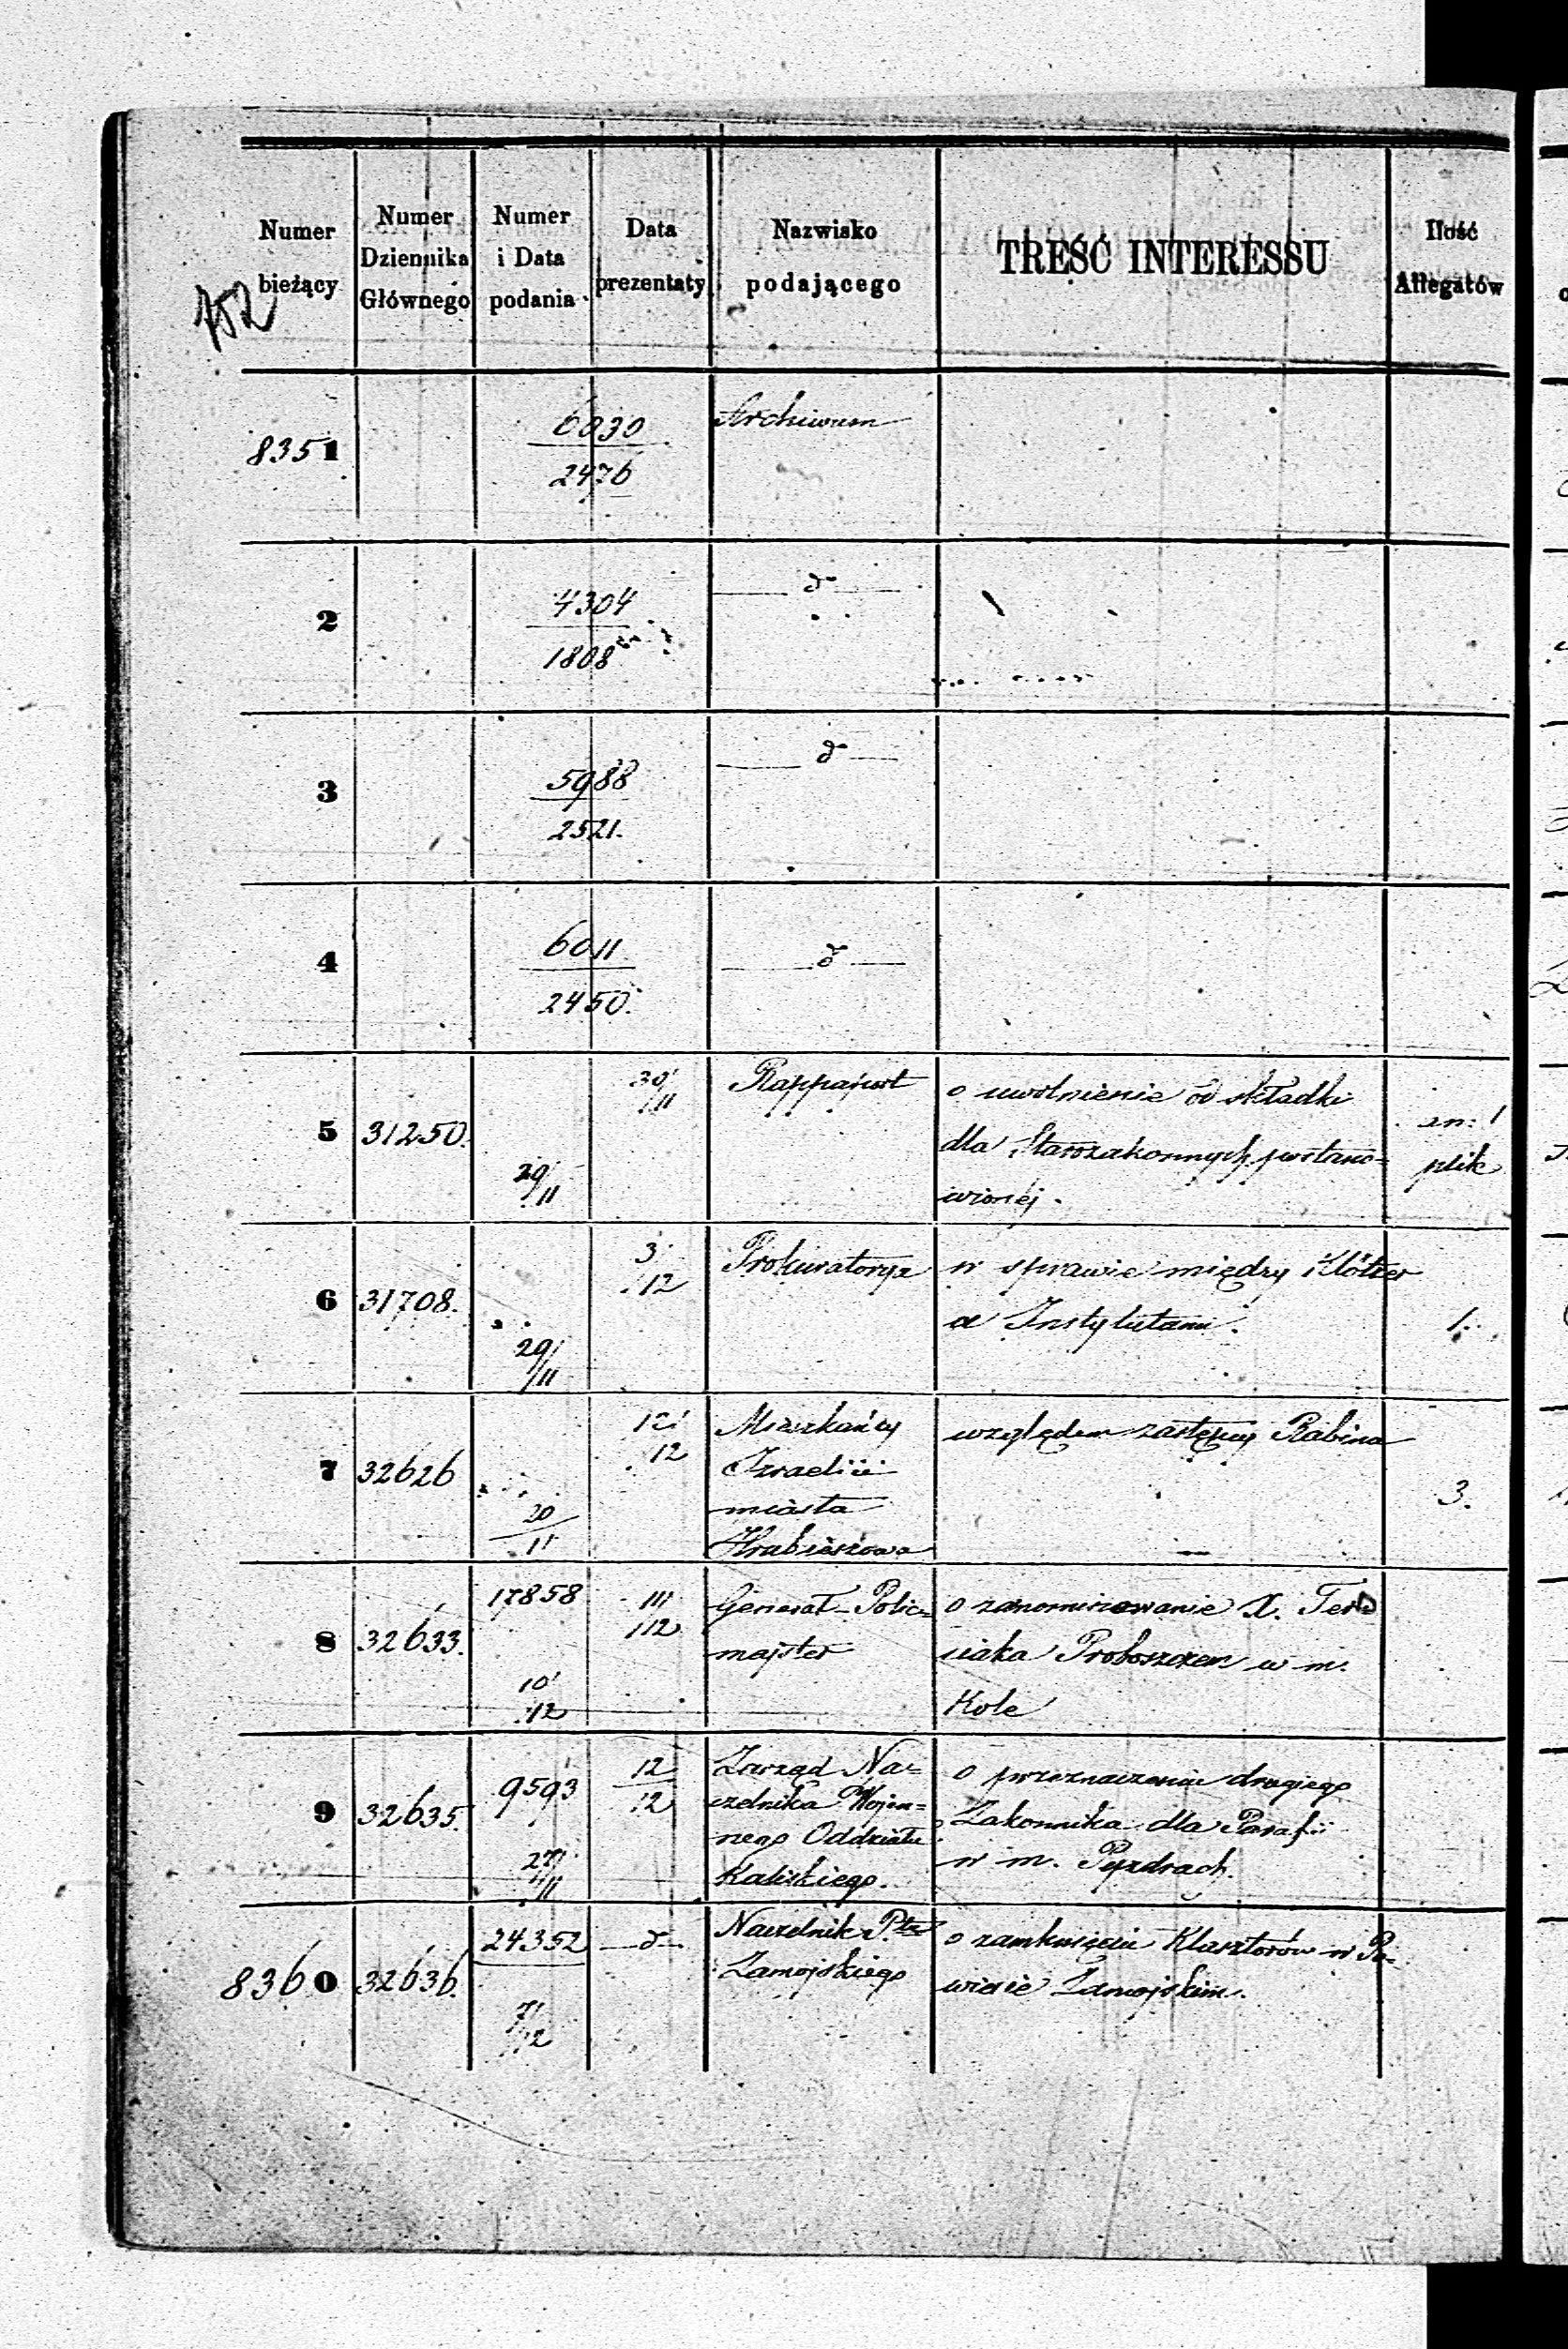 752
Numer bieżący
Numer Dziennika Głównego
Numer i Data podania
Data prezentaty
Nazwisko podającego
TREŚĆ INTERESSU
Ilość Allegatów
8351
6030
2476
Archiwum
2
4304
1808
d°
3
5988
2521.
d°
4
6011
2450.
d°
5
31250.
29/11
30/11
Rappaport
o uwolnienie od składki
dla Starozakonnych postano-
wionéj.
1
plik
6
31708.
29/11
3/12
Prokuratorya
w sprawie między
a Instytutami.
1.
7
32626
20/11
12/12
Mieszkańcy
Izraelici
miasta
Hrubieszowa
względem zastępcy Rabina
3.
8
32633.
17858
10/12
11/12
Generał-Polic-
majster
o zanominowanie X.
Proboszczem w m.
Kole
9
32635.
9593
27/11
12/12
Zarząd Na-
czelnika Wojen-
nego Oddziału
Kaliskiego.
o przeznaczenie drugiego
Zakonnika dla Parafii
w m. Pyzdrach.
8360
32636.
24352
7/12
d°
Naczelnik Ptu
Zamojskiego
o zamknięciu Klasztorów w Po-
wiecie Zamojskim.